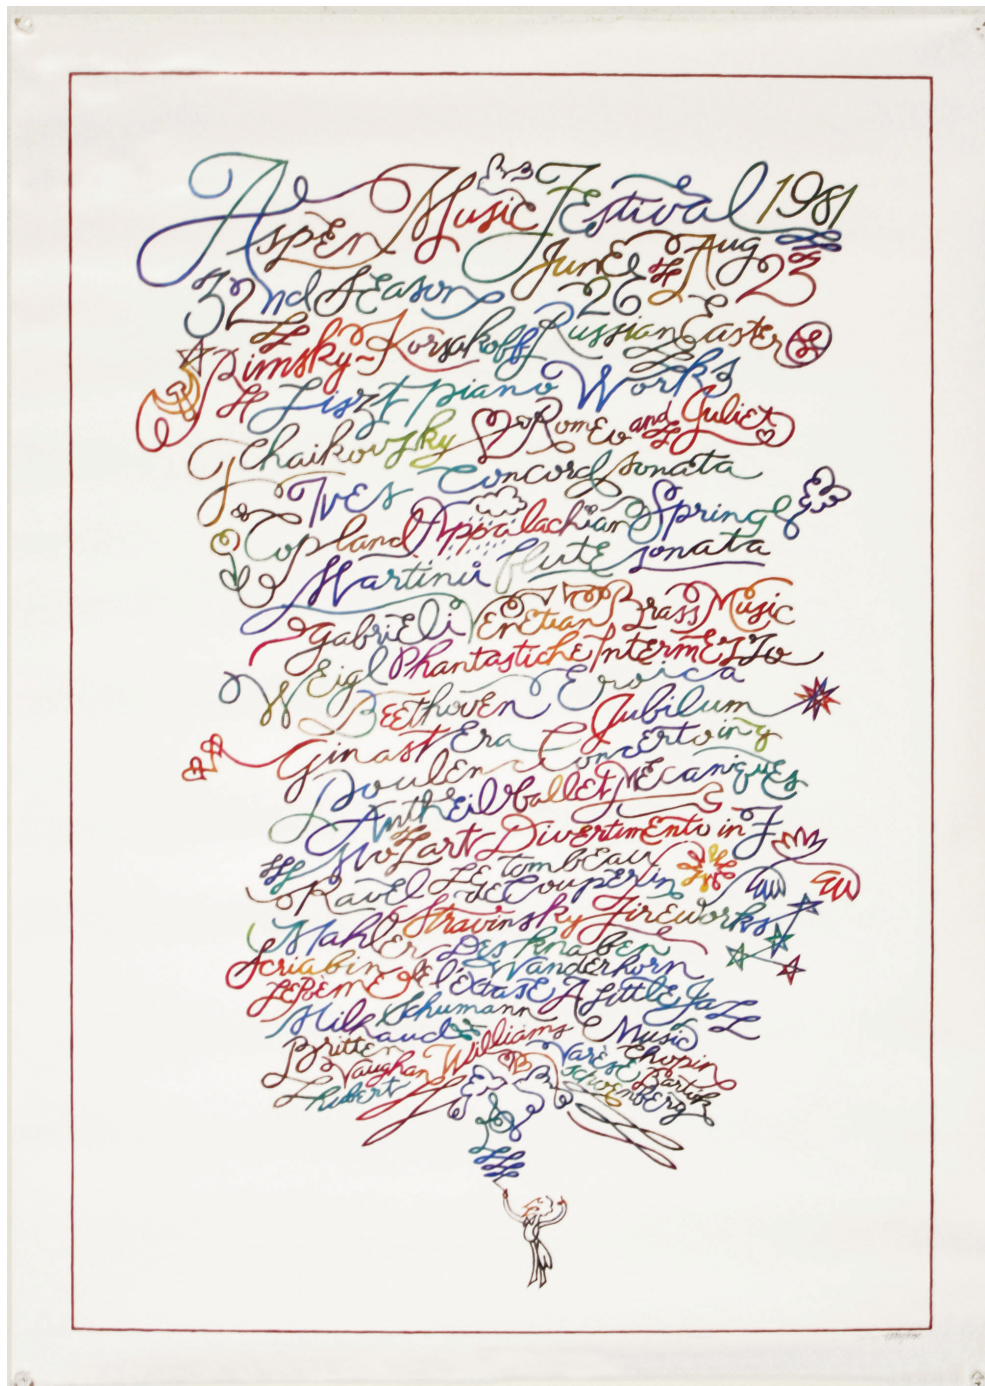 Aspen Music Festival 1981
32nd Season June 26 & Aug 23
Rimsky-Korsakoff Russian Easter
Liszt piano Works
Tchaikovsky Romeo and Juliet
Ives Concord Sonata
Copland Appalachian Spring
Martinů flute sonata
Gabrieli Venetian Brass Music
Weigl Phantastiche Intermezzo
Beethoven Eroica
Ginastera Jubilum
Poulenc Concerto in g
Antheil Ballet Mecaniques
Mozart Divertimento in F
Ravel Le tombeau de Couperin
Stravinsky Fireworks
Mahler Des Knaben Wanderhorn
Scriabin Le Poème de l'éxtase
Milhaud A Little Jazz Music
Schumann
Britten Vaughan Williams Varèse Chopin
Shubert Schoenberg Bartók